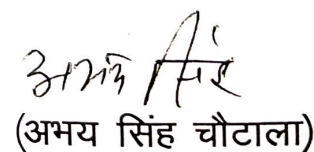 अभय सिंह
(अभय सिंह चौटाला)